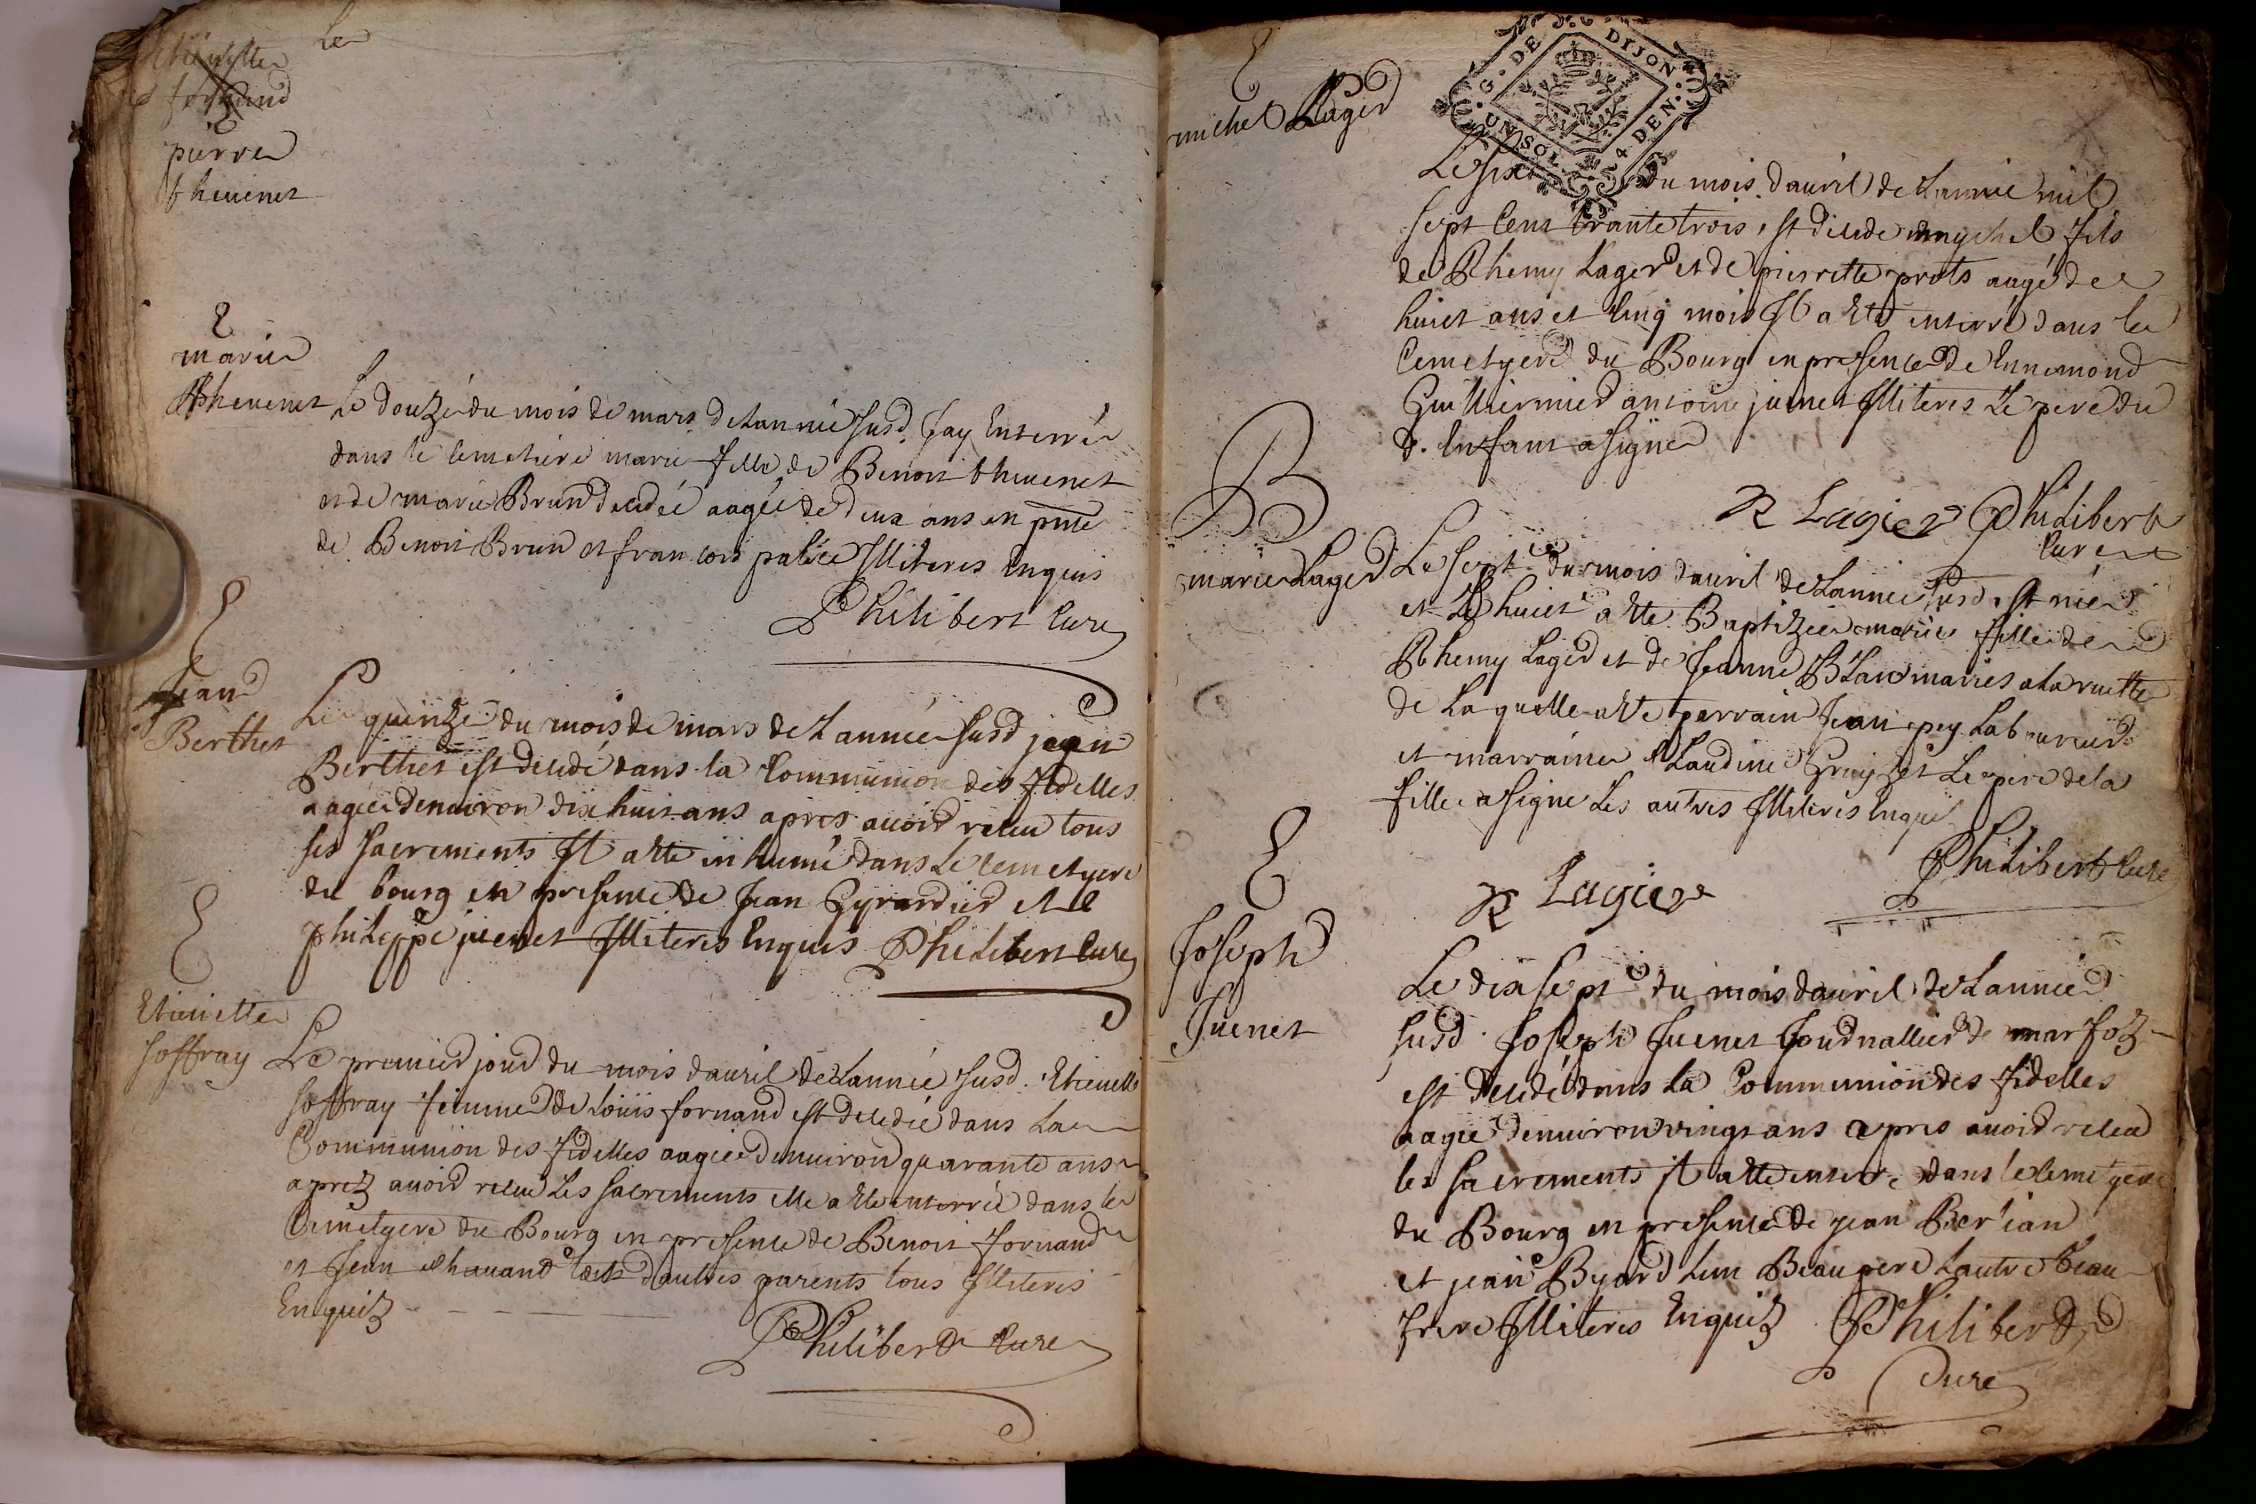 Le
Etiennette
fornand
E
pierre
thevenet
E
marie
Thevenet
Le douzé du mois de mars de Lannée susd. Jay Enterré
dans le cemetiere marie fille de Benoit thevenet
et de marie Brun decedée aagée de deux ans en pnce
de Benoit Brun et francois palice Illiteres Enquis
Philibert Curé
E
Jean
Berthet
Le quinzé du mois de mars de Lannée susd jean
Berthet est decedé dans la Communion des fidelles
aagée denuiron dix huit ans apres auoir receu tous
ses sacrements Il a ete inhumé dans Le cemetyere
du bourg en presence de Jean Gyrardier et de
philippe juenet Illiteres Enquis Philibert Curé
E
Etiennette
soffray
Le premier jour du mois dauril de Lannée susd. Etiennette
soffray femme de Louis fornand est decedée dans La
Communion des fidelles aagiée denuiron quarante ans
aprez auoir receu Les sacrements elle a ete enterrée dans le
Cemetyere du Bourg en presence de Benoit fornand
et Jean chauand et dautres parents tous Illiteres
Enquiz
Philibert Curé
E
michel Lager
G. DE DIJON
UN SOL 4 DEN.
Le six du mois dauril de Lannée mil
sept Cent trante trois, est decede mychel fils
de Rhemy Lager et de pierrette prots aagé de
huict ans et Cinq mois Il a ete enterré dans le
Cemetyere du Bourg en presence de Ennemond
Guilliermier antoine juenet Illiteres Le pere du
d. Enfant a signe
R Lagier Philibert
Curé
B
marie Lager
Le sept du mois dauril de Lannée susd. est née
et Le huict a ete Baptizée marie fille de
Rhemy Lager et de Jeanne BLanc mariés a La ruette
de Laquelle a ete parrain Jean pey Laboureur
et marraine CLaudine Gruyzet Le pere de la
fille a signe Les autres Illiteres Enquis
Philibert Curé
R Lagier
E
Joseph
Juenet
Le dix sept du mois dauril de Lannée
susd. Joseph Juenet Journallier de marfoz
est decedé dans La Communion des fidelles
aagée denuiron vingt ans apres auoir receu
les sacrements Il a ete enterré dans le cemetyere
du Bourg en presence de jean Berlan
et jean Byard Lun Beaupere Lautre beau
frere Illiteres Enquiz Philibert
Curé